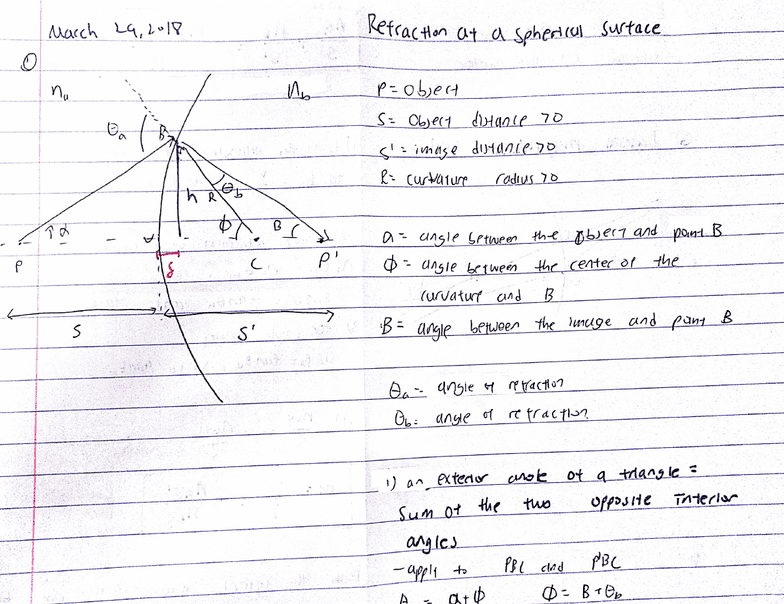 March 29, 2018
Refraction at a Spherical Surface
①
n_a
n_b
θ_a
B
h
R
θ_b
α
φ
B
P
V
δ
C
P'
S
S'
P = Object
S = Object distance >0
S' = image distance >0
R = curvature radius >0
α = angle between the object and point B
φ = angle between the center of the
curvature and B
B = angle between the image and point B
θ_a = angle of refraction
θ_b = angle of refraction
1) an exterior angle of a triangle =
Sum of the two opposite interior
angles
- apply to PBC and P'BC
θ_a = α+φ φ = B+θ_b